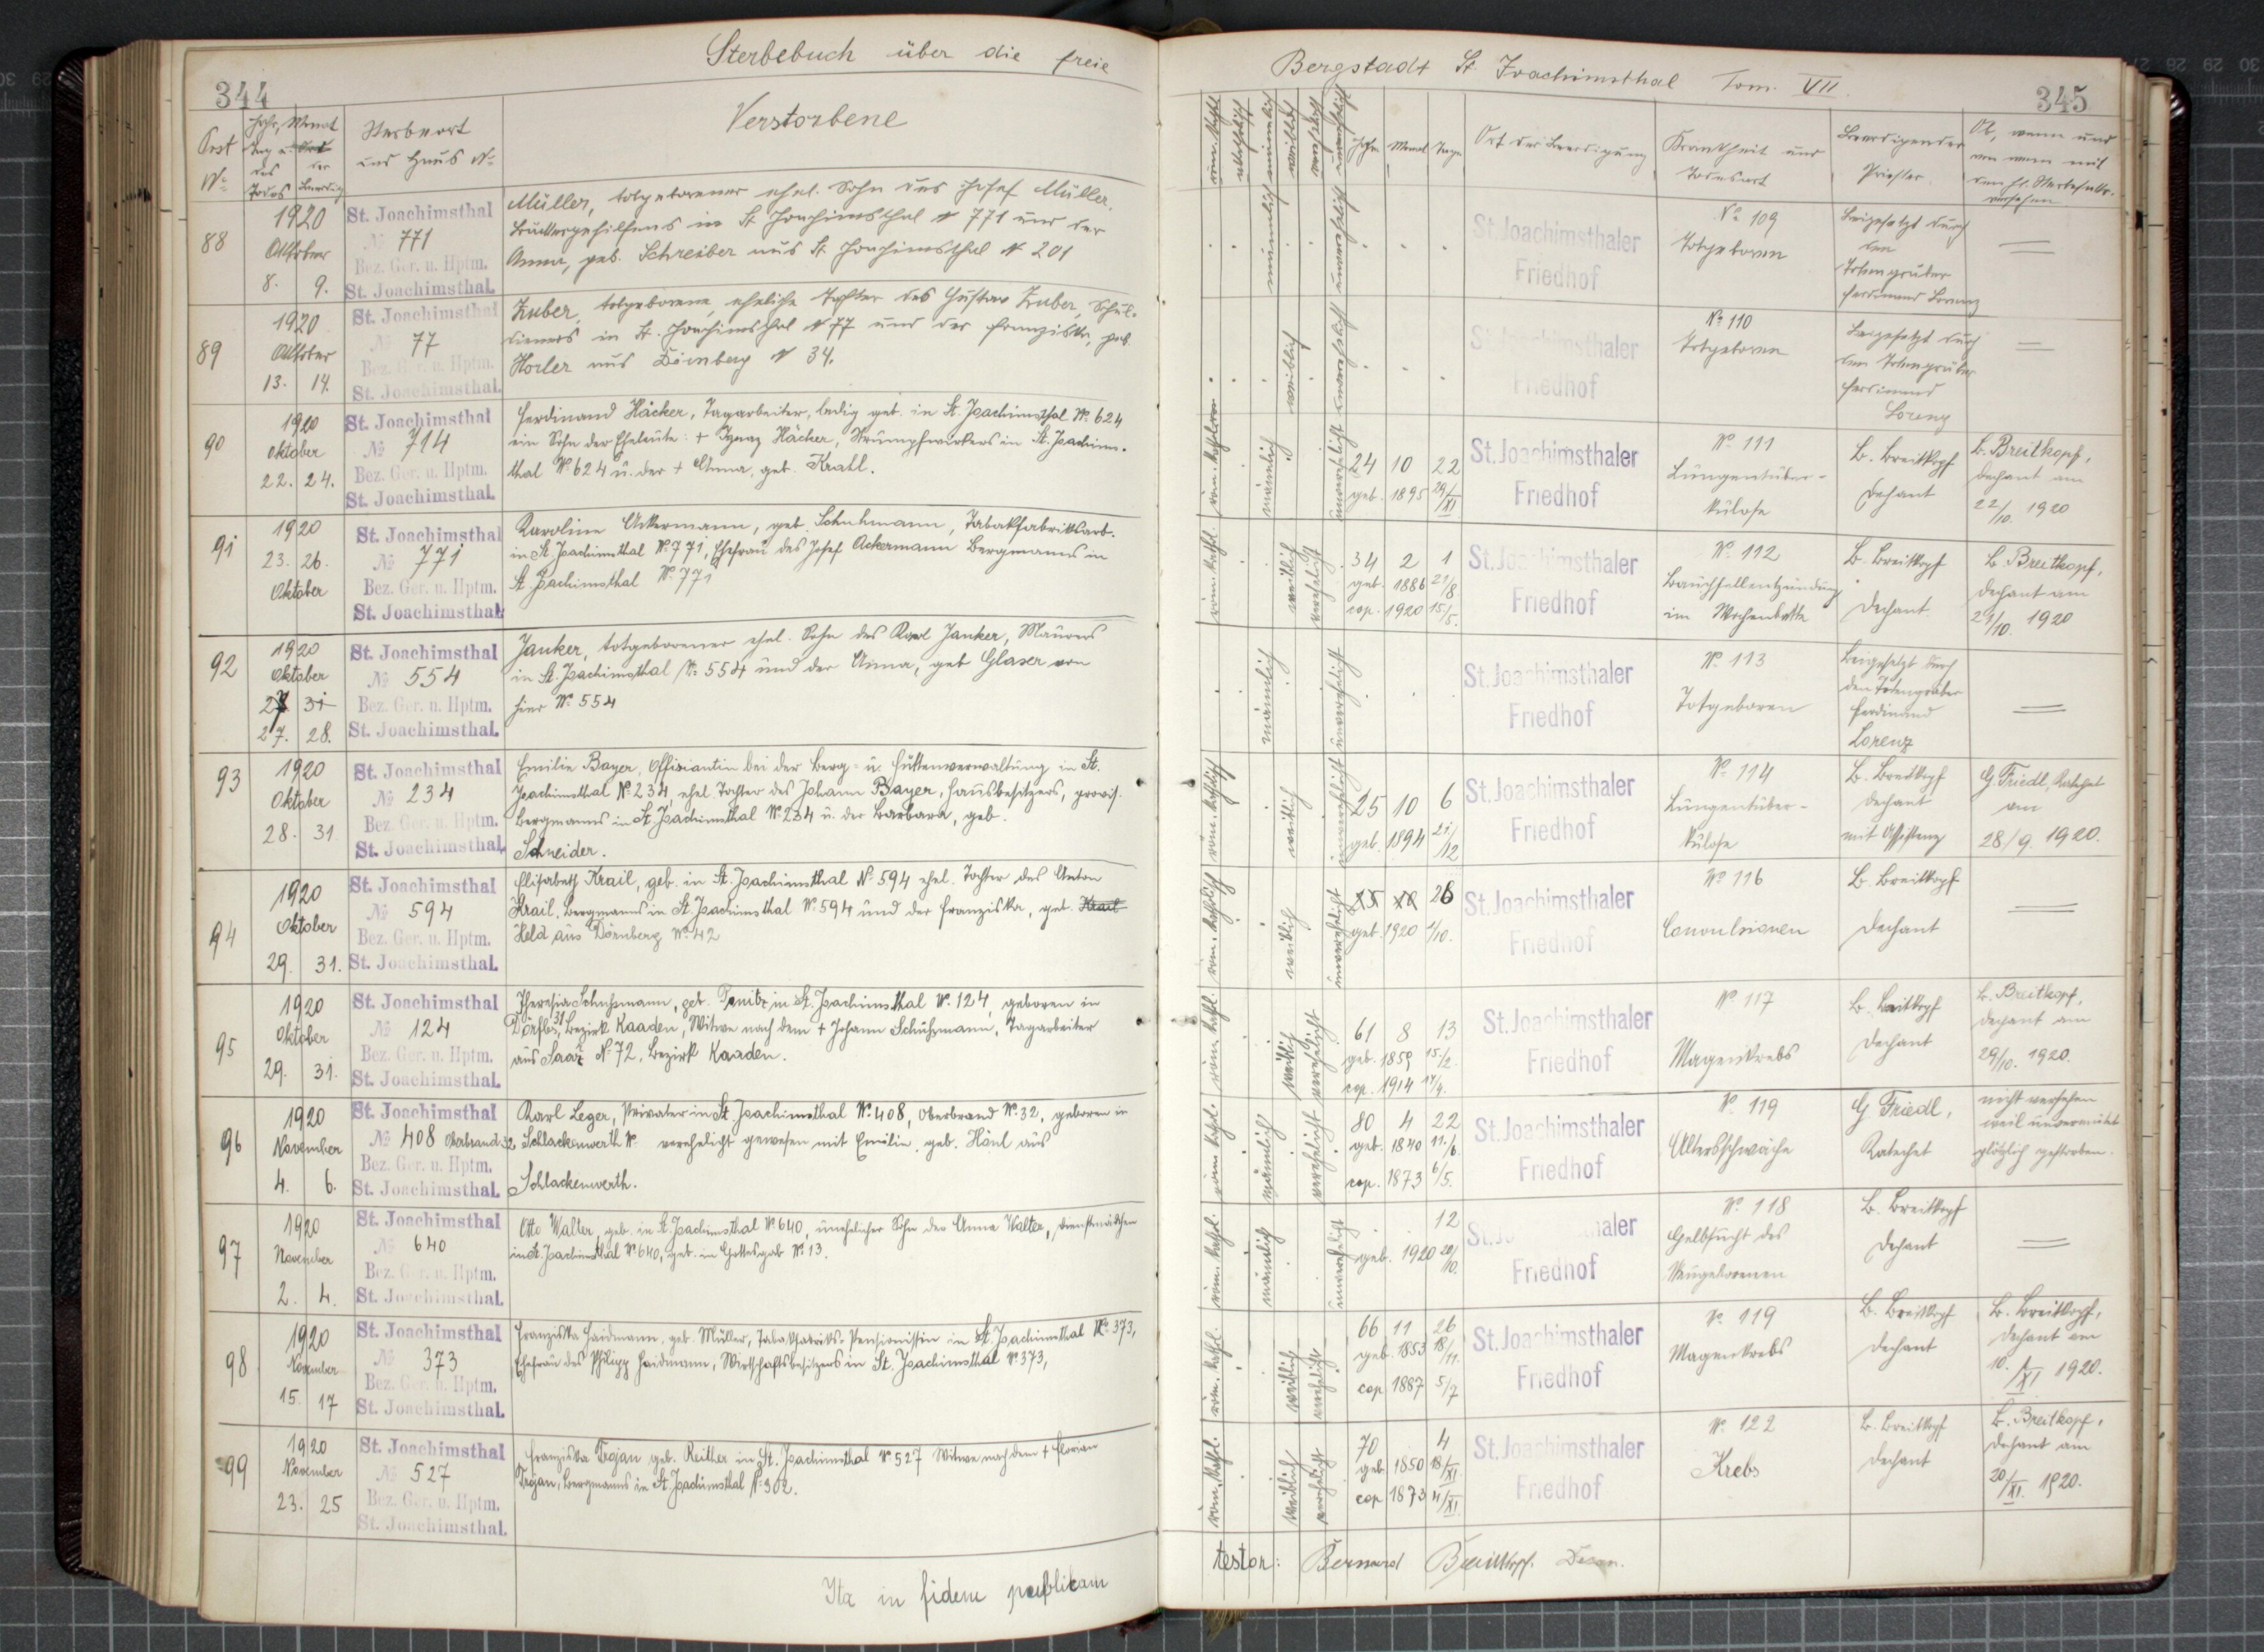 Sterbebuch über die freie
344
Post
Nº
Jahr, Monat
Tag u. Ort
des
der
Todes
Beerdig
Sterbeort
und Haus Nº
Verstorbene
88
1920
Oktober
8. 9.
St. Joachimsthal
Nº 771
Bez. Ger. u. Hptm.
St. Joachimsthal.
Müller, totgeborener ehel. Sohn des Josef Müller,
Bäckergehilfens in St. Joachimsthal Nº 771 und der
Anna, geb. Schreiber aus St. Joachimsthal Nº 201
89
1920
Oktober
13. 14.
St. Joachimsthal
Nº 77
Bez. Ger. u. Hptm.
St. Joachimsthal.
Zuber, totgeborene, eheliche Tochter des Gustav Zuber, Schul-
dieners in St. Joachimsthal Nº 77 und der Franziska, geb.
Horler aus Dörnberg Nº 34.
90
1920
Oktober
22. 24.
St. Joachimsthal
Nº 714
Bez. Ger. u. Hptm.
St. Joachimsthal.
Ferdinand Häcker, Tagarbeiter, ledig geb. in St. Joachimsthal Nº 624
ein Sohn der Eheleute: + Ignaz Häcker, Strumpfwirkers in St. Joachims-
thal Nº 624 u. der + Anna, geb. Krahl.
91
1920
23. 26.
Oktober
St. Joachimsthal
Nº 771
Bez. Ger. u. Hptm.
St. Joachimsthal.
Karoline Ackermann, geb. Schuhmann, Tabakfabriksarb.
in St. Joachimsthal Nº 771, Ehefrau des Josef Ackermann Bergmanns in
St. Joachimsthal Nº 771
92
1920
Oktober
27 31
27. 28.
St. Joachimsthal
Nº 554
Bez. Ger. u. Hptm.
St. Joachimsthal.
Janker, totgeborener ehel. Sohn des Karl Janker, Maurers
in St. Joachimsthal Nº 554 und der Anna, geb Glaser von
hier Nº 554
93
1920
Oktober
28. 31.
St. Joachimsthal
Nº 234
Bez. Ger. u. Hptm.
St. Joachimsthal.
Emilie Bayer, Offiziantin bei der Berg- u. Hüttenverwaltung in St.
Joachimsthal Nº 234, ehel. Tochter des Johann Bayer, Hausbesitzers, provis.
Bergmanns in St. Joachimsthal Nº 234 u. der Barbara, geb.
Schneider.
94
1920
Oktober
29. 31.
St. Joachimsthal
Nº 594
Bez. Ger. u. Hptm.
St. Joachimsthal.
Elisabeth Krail, geb. in St. Joachimsthal Nº 594 ehel. Tochter des Anton
Krail, Bergmanns in St. Joachimsthal Nº 594 und der Franziska, geb. Krail
Held aus Dörnberg Nº 42
95
1920
Oktober
29. 31.
St. Joachimsthal
Nº 124
Bez. Ger. u. Hptm.
St. Joachimsthal.
Theresia Schuhmann, geb. in St. Joachimsthal Nº 124, geboren in
Dörfles 31, Bezirk Kaaden, Witwe nach dem + Johann Schuhmann, Tagarbeiter
aus Saar Nº 72, Bezirk Kaaden.
96
1920
November
4. 6.
St. Joachimsthal
Nº 408 Oberbrand 32
Bez. Ger. u. Hptm.
St. Joachimsthal.
Karl Leger, Privater in St. Joachimsthal Nº 408, Oberbrand Nº 32, geboren in
Schlackenwerth Nº verehelicht gewesen mit Emilie, geb. Hänl aus
Schlackenwerth.
97
1920
November
2. 4.
St. Joachimsthal
Nº 640
Bez. Ger. u. Hptm.
St. Joachimsthal.
Otto Walter, geb. in St. Joachimsthal Nº 640, unehelicher Sohn der Anna Walter, Dienstmädchen
in St. Joachimsthal Nº 640, geb. in Gottesgab Nº 13.
98
1920
November
15. 17
St. Joachimsthal
Nº 373
Bez. Ger. u. Hptm.
St. Joachimsthal.
Franziska Haidmann, geb. Müller, Tabakfabriks-Pensionistin in St. Joachimsthal Nº 373,
Ehefrau des Philipp Haidmann, Wirtschaftsbesitzers in St. Joachimsthal Nº 373,
99
1920
November
23. 25
St. Joachimsthal
Nº 527
Bez. Ger. u. Hptm.
St. Joachimsthal.
Franziska Trojan geb. Reither in St. Joachimsthal Nº 527 Witwe nach dem + Florian
Trojan, Bergmanns in St. Joachimsthal Nº 302.
Ita in fidem publicam
Bergstadt St. Joachimsthal Tom. VII.
345
röm. kath.
männlich
weiblich
verehelicht
unverehelicht
Jahre
Monat
Tage
Ort der Beerdigung
Krankheit und
Todesart
Beerdigender
Priester.
Ob, wann und
von wem mit
den hl. Sterbesakr.
versehen
männlich
unverehelicht
St. Joachimsthaler
Friedhof
Nº 109
Totgeboren
Beigesetzt durch
den
Totengräber
Ferdinand Lorenz
weiblich
unverehelicht
St. Joachimsthaler
Friedhof
Nº 110
Totgeboren
Beigesetzt durch
den Totengräber
Ferdinand
Lorenz
röm. kathol.
männlich
unverehelicht
24 10 22
geb. 1895 29/XI
St. Joachimsthaler
Friedhof
Nº 111
Lungentuber-
kulose
B. Breitkopf
Dechant
B. Breitkopf,
Dechant am
22/10. 1920
röm. kathol.
weiblich
verehelicht
34 2 1
geb. 1886 21/8
cop. 1920 15/5.
St. Joachimsthaler
Friedhof
Nº 112
Bauchfellentzündung
im Wochenbette
B. Breitkopf
Dechant.
B. Breitkopf,
Dechant am
21/10. 1920
männlich
unverehelicht
St. Joachimsthaler
Friedhof
Nº 113
Totgeboren
Beigesetzt durch
den Totengräber
Ferdinand
Lorenz
röm. katholisch
weiblich
unverehelicht
25 10 6
geb. 1894 21/12
St. Joachimsthaler
Friedhof
Nº 114
Lungentuber-
kulose
B. Breitkopf
Dechant
mit Assistenz
G Friedl, Katechet
am
28/9. 1920.
röm. katholisch
weiblich
unverehelicht
28
geb. 1920 1/10.
St. Joachimsthaler
Friedhof
Nº 116
Convulsionen
B. Breitkopf
Dechant
röm. kathl.
weiblich
verehelicht
61 8 13
geb. 1859 15/2.
cop. 1914 14/4.
St. Joachimsthaler
Friedhof
Nº 117
Magenkrebs
B. Breitkopf
Dechant
B. Breitkopf,
Dechant am
29/10. 1920.
röm. kathol.
männlich
verehelicht
80 4 22
geb. 1840 11./6.
cop. 1873 6/5.
St. Joachimsthaler
Friedhof
Nº 119
Altersschwäche
G Friedl,
Katechet
nicht versehen
weil unvermutet
plötzlich gestorben.
röm. kathol.
männlich
unverehelicht
12
geb. 1920 20/10.
St. Joachimsthaler
Friedhof
Nº 118
Gelbsucht des
Neugeborenen
B. Breitkopf
Dechant
röm. kathl.
weiblich
verehelicht
66 11 26
geb. 1853 18/11.
cop 1887 5/7
St. Joachimsthaler
Friedhof
Nº 119
Magenkrebs
B. Breitkopf
Dechant
B. Breitkopf,
Dechant am
10./XI 1920.
röm. kathl.
weiblich
verehelicht
70 4
geb. 1850 18/XI
cop 1873 4/XI.
St. Joachimsthaler
Friedhof
Nº 122
Krebs
B. Breitkopf
Dechant
B. Breitkopf,
Dechant am
20/XI. 1920.
testor: Bernard Breitkopf. Decan.